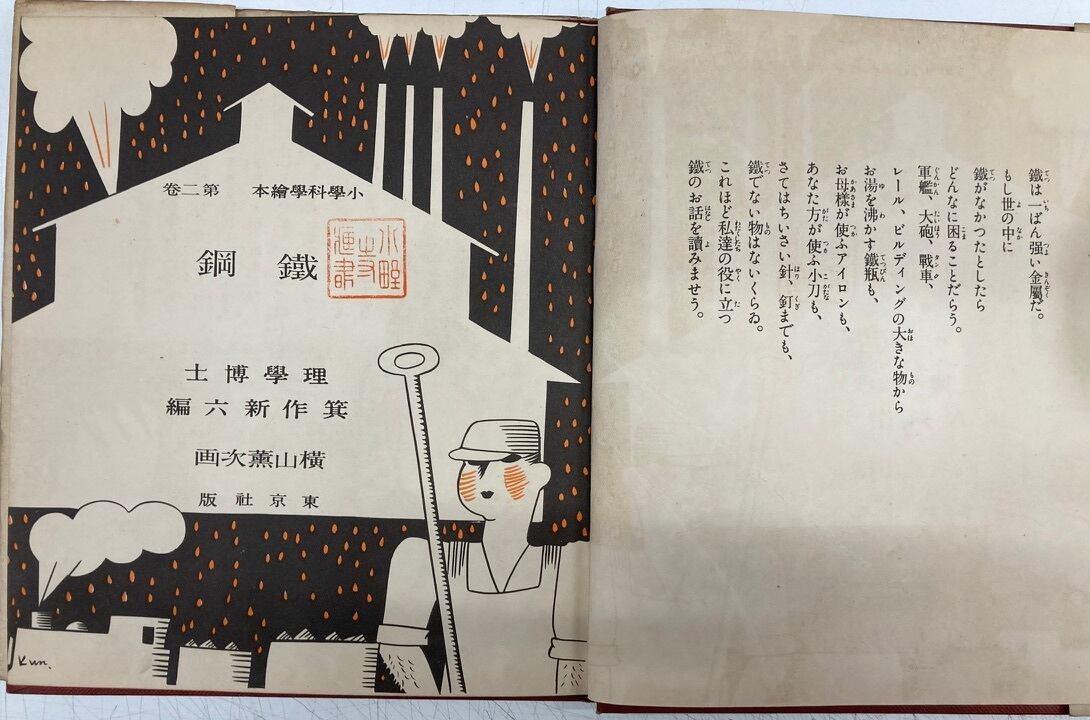 小學科學繪本 第二卷
鐵鋼
理學博士
箕作新六編
橫山薰次画
東京社版
Kun.
鐵は一ばん强い金屬だ。
もし世の中に
鐵がなかつたとしたら
どんなに困ることだらう。
軍艦、大砲、戰車、
レール、ビルディングの大きな物から
お湯を沸かす鐵瓶も、
お母樣が使ふアイロンも、
あなた方が使ふ小刀も、
さてはちいさい針、釘までも、
鐵でない物はないくらゐ。
これほど私達の役に立つ
鐵のお話を讀みませう。